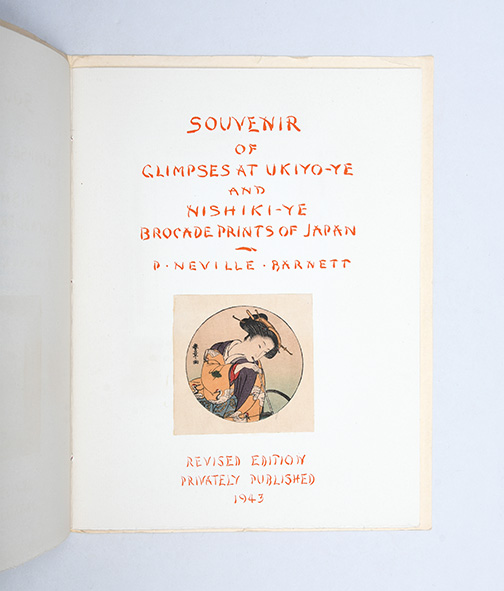 SOUVENIR
OF
GLIMPSES AT UKIYO-YE
AND
NISHIKI-YE
BROCADE PRINTS OF JAPAN
P · NEVILLE · BARNETT
REVISED EDITION
PRIVATELY PUBLISHED
1943